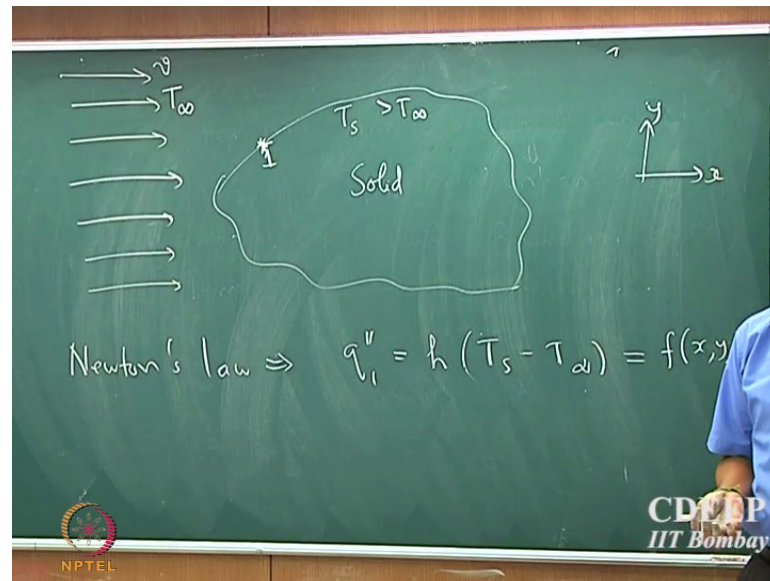 v
T∞
Ts > T∞
1
Solid
y
x
Newton's law ⇒ q₁" = h (Ts - T∞) = f(x,y
CDEEP
IIT Bombay
NPTEL